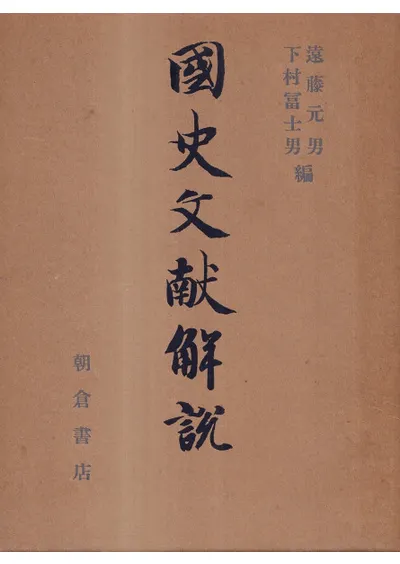 遠藤元男
下村冨士男 編
國史文献解説
朝倉書店